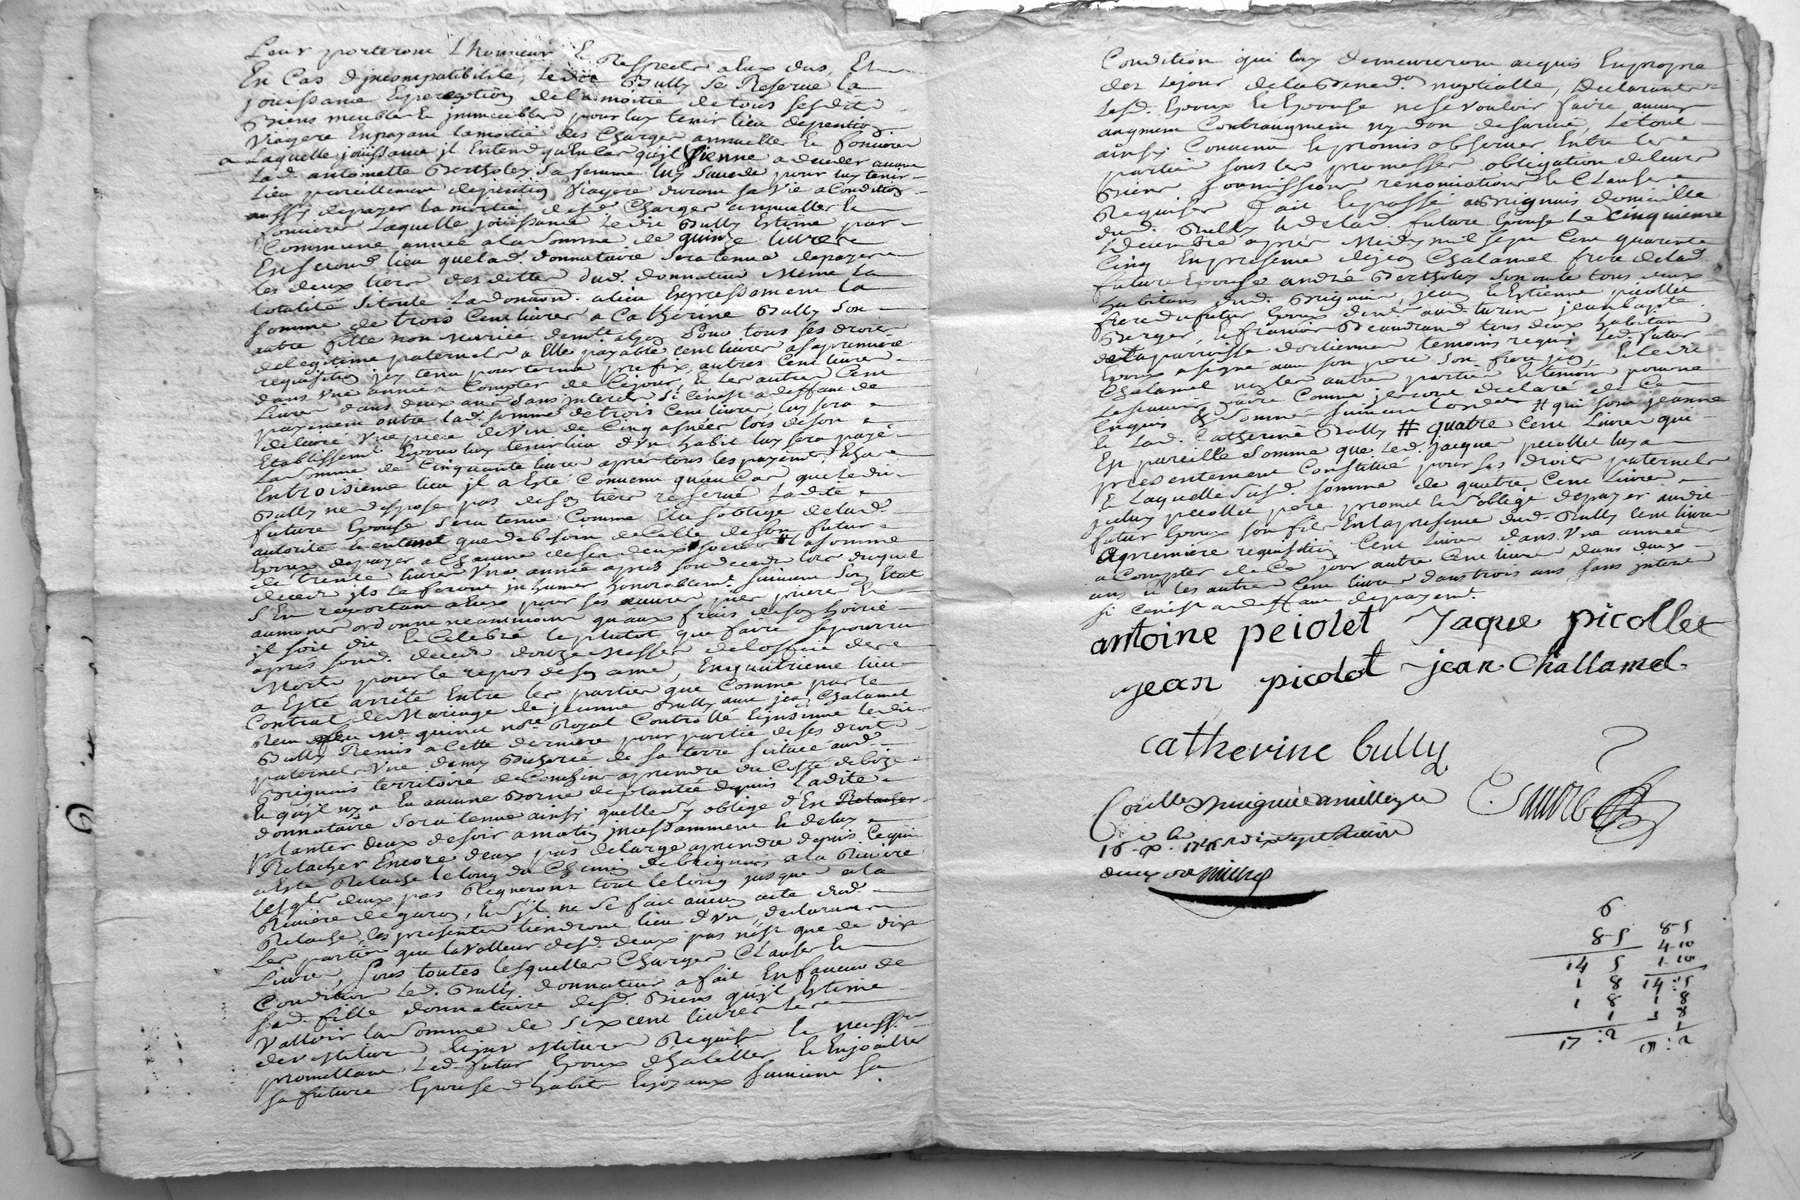 Leur porteront l'honneur & Respects a Eux dus, Et
En Cas d'jncompatibilité, Ledit Bully se Reserve la
jouissance & perception de la moitié de tous sesdits
Biens meubles & jmmeubles pour luy tenir lieu de pention
Viagere En payant la moitié des Charges annuelles & foncieres
Laquelle jouissance jl Entend qu'En Cas qu'jl Vienne a deceder avant
lad. antoinette Bertholey sa femme luy succede pour luy tenir
Lieu pareillement de pention Viagere durant sa Vie a Condition
aussy de payer la moitié desd. Charges annuelles &
foncieres Laquelle jouissance Ledit Bully Estime par
Commune année a la somme de quinze livres
En second lieu que lad. donnataire sera tenue de payer
les deux tiers des dettes dud. donnateur Même la
totalité si toute la donnaon. a lieu Expressement la
somme de trois Cent livres a Catherine Bully son
autre fille non Mariée pour tous ses droits
de legitime paternels a Elle payable Cent livres a sa premiere
requisition jcy tenu pour terme prefix, autres Cent livres
dans Une année a Compter de Ce jour, & les autres Cent
Livres dans deux ans sans jnterets si Ce n'est a deffaut de
payement outre lad. somme de trois Cent livres luy sera
delivré Une piece de Vin de Cinq asnées lors de son
Etablissement & pour luy tenir lieu d'Un habit luy sera payé
La somme de Cinquante livres après tous les payements
En troisieme lieu jl a Esté Convenu qu'au Cas que Ledit
Bully ne dispose pas de son tiers reservé Ladite
future Epouse sera tenue Comme Elle s'oblige de lad.
autorité & en tant que de besoin de Celle de son futur
Epoux de payer a Chacune de ses deux soeurs la somme
de trente livres Une année après son deced lors duquel
deced jls le feront jnhumer honorablemt. suivant son Etat
S'En raportant a Eux pour ses oeuvres pies prieres &
aumones ordonne neantmoins qu'aux frais de son hoirie
jl soit dit & Celebré le plutôt que faire se pourra
après sond. deced douze Messes de l'office des
Morts pour le repos de son ame, En quatrieme lieu
a Esté arrêté Entre les parties que Comme par le
Contrat de Mariage de jeanne Bully avec jean Chalamel
Receu Me. quinet nore. Royal Controllé & jnsinué ledit
Bully Remis a Cette derniere pour partie de ses droits
paternels Une demy Bicherée de sa terre située aud.
Brignais territoire de a prendre du Costé de bize
& qu'jl ny a Eu aucune Borne de plantée depuis Ladite
donnataire sera tenue ainsy quelle s'y oblige d'En
planter deux de soir a matin jncessamment & de luy
Relacher Encore deux pas de large a prendre depuis Ce qui
a Esté Relaché le long du Chemin de brignais a la Riviere
lesqls. deux pas Regneront tout le long jusque a la
Riviere de garon, & s'jl ne se fait aucun acte dud.
Relache, les presentes tiendront lieu d'Un, declarant
Les parties que la Valleur desd. deux pas n'est que de dix
Livres, sous toutes lesquelles Charges Clauses &
Conditions led. Bully donnateur a fait En faveur de
sad. fille donnataire desd. Biens qu'jl Estime
Valloir la somme de six cent livres les
devestiture & jnvestiture Requise &
promettant Led. futur Epoux d'habiller & Enjoailler
sa future Epouse d'habits & joyaux suivant sa
Condition qui luy demeureront acquis En propre
dez Le jour de la Bened.on nuptialle, Declarants
Lesd. Epoux & Epouse ne se Vouloir faire aucun
augment Contraugment ny don de survie, Le tout
ainsy Convenu & promis observer Entre les
parties sous les promesses obligations de leurs
Biens soumissions renonciations & Clauses
Requises fait & passé a Brignais domicille
dud. Bully & de lad. future Epouse Le Cinquieme
decembre après Midy mil sept Cent quarente
Cinq En presence de jean Chalamel frere de lad.
future Epouse andré Bertholey son oncle tous deux
habitans dud. Brignais, jean & Estienne picollet
freres du futur Epoux jean bapte.
Berger, & françois Beaudrand tous deux habitans
de la parroisse d'orlienas temoins requis Led. futur
Epoux a signé avec son pere son frere jean, & Ledit
Chalamel ny les autres parties & temoins pour ne
le sçavoir faire Comme jls ont declaré de Ce
Enquis & Sommés suivant l'ordce. # qui sont jeanne
& Lad. Catherine Bully # quatre Cent Livres qui
Est pareille somme que led. jacques picollet luy a
presentement Constitué pour ses droits paternels
& Laquelle susd. somme de quatre Cent livres
jceluy picollet pere promet & s'oblige de payer audit
futur Epoux son fils En la presence dud. Bully Cent livres
a premiere requisition Cent livres dans Une année
a Compter de Ce jour autres Cent livres dans deux
ans & les autres Cent livres dans trois ans sans jnterets
si Ce n'est a deffaut de payemt.
antoine peiolet Jaque picollet
jean picolot jean Challamel
catherine bully
17 :2
6
8 5
14 5
1 8
1 8
1
8 5
4 10
1 10
14 : 5
1 8
1 8
1